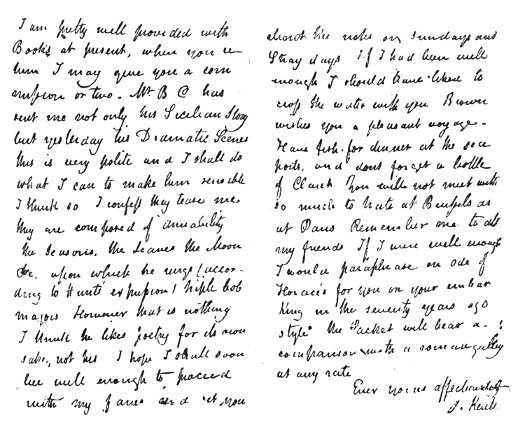 I am pretty well provided with
Books at present, when you re
turn I may give you a com
mission or two - Mr B C has
sent me not only his Sicilian Story
but yesterday his Dramatic Scenes
this is very polite and I shall do
what I can to make him sensible
I think so I confess they teaze me
they are composed of amiability
the Seasons, the Leaves the Moon
&c. upon which he rings (accor-
ding to Hunt's expression) triple bob
majors However that is nothing
I think he likes poetry for its own
sake, not his I hope I shall soon
be well enough to proceed
with my and you
about like notes on Sundays and
Stray days If I had been well
enough I should have liked to
cross the water with you Brown
wishes you a pleasant voyage -
Have fish for dinner at the sea
ports, and dont forget a bottle
of Claret You will not meet with
so much to hate at Brussels as
at Paris Remember me to all
my friends If I were well enough
I would paraphrase an ode of
Horace's for you on your embar
king in the seventy years ago
style the Packet will bear a
comparison with a roman galley
at any rate
Ever yours affectionately
J. Keats